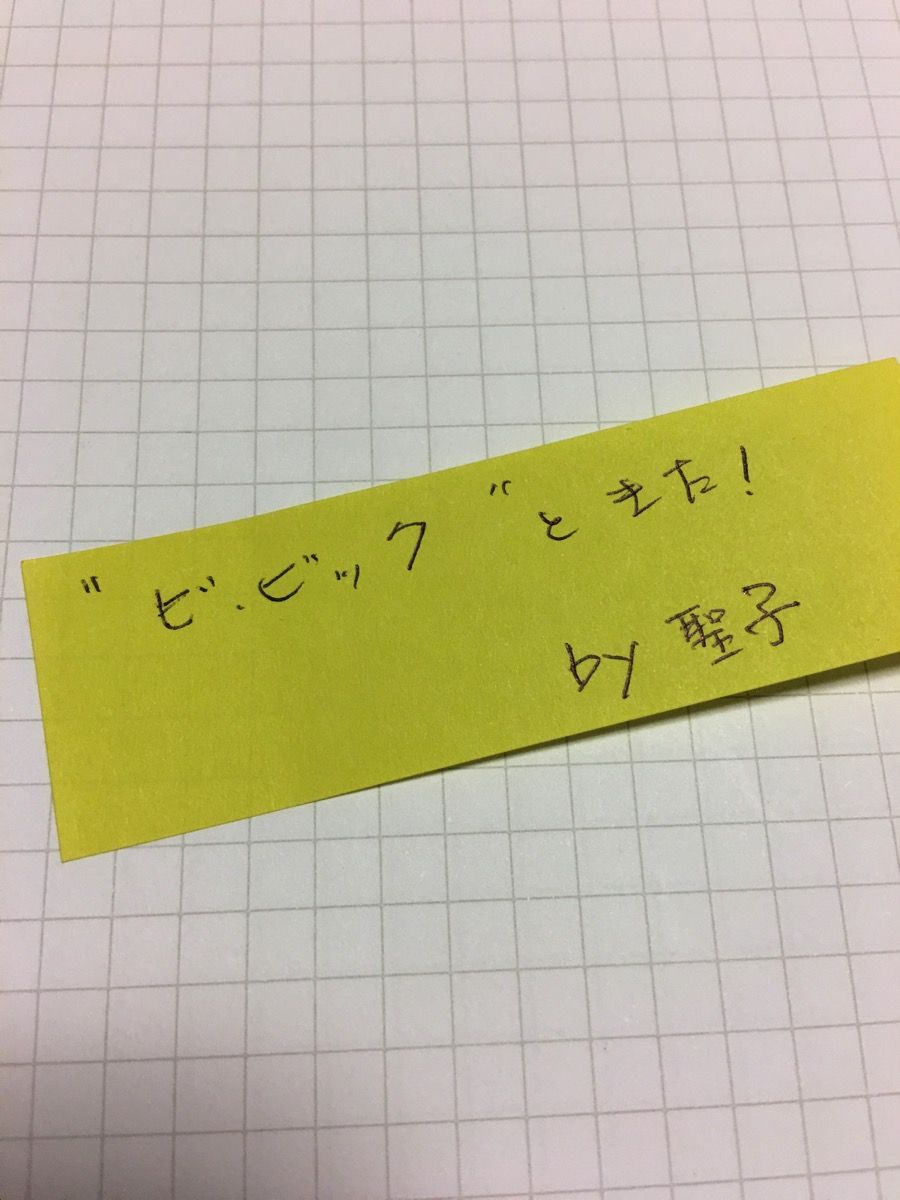 "ビ.ビック"ときた!
by 聖子